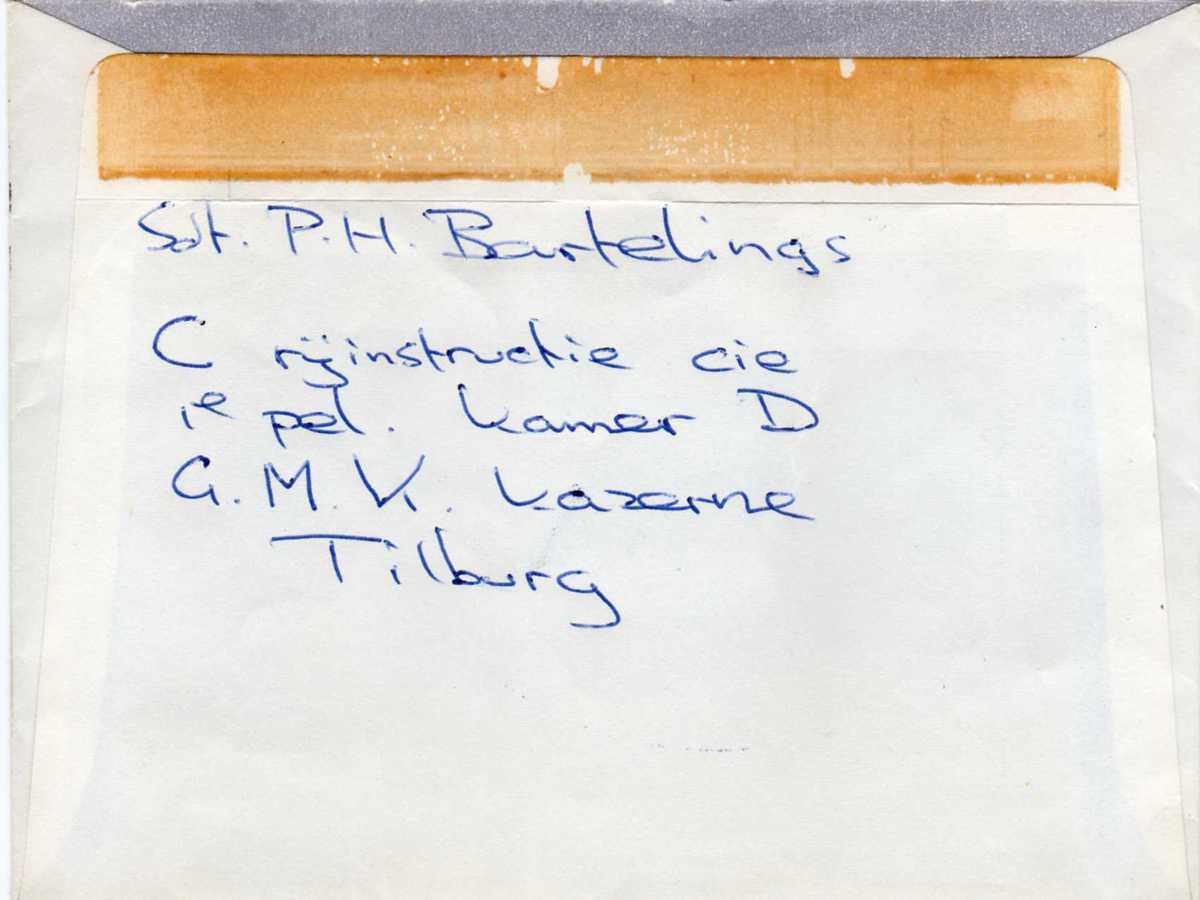 Sdt. P.H. Bartelings
C rijinstructie cie
1e pel. kamer D
G.M.K. kazerne
Tilburg